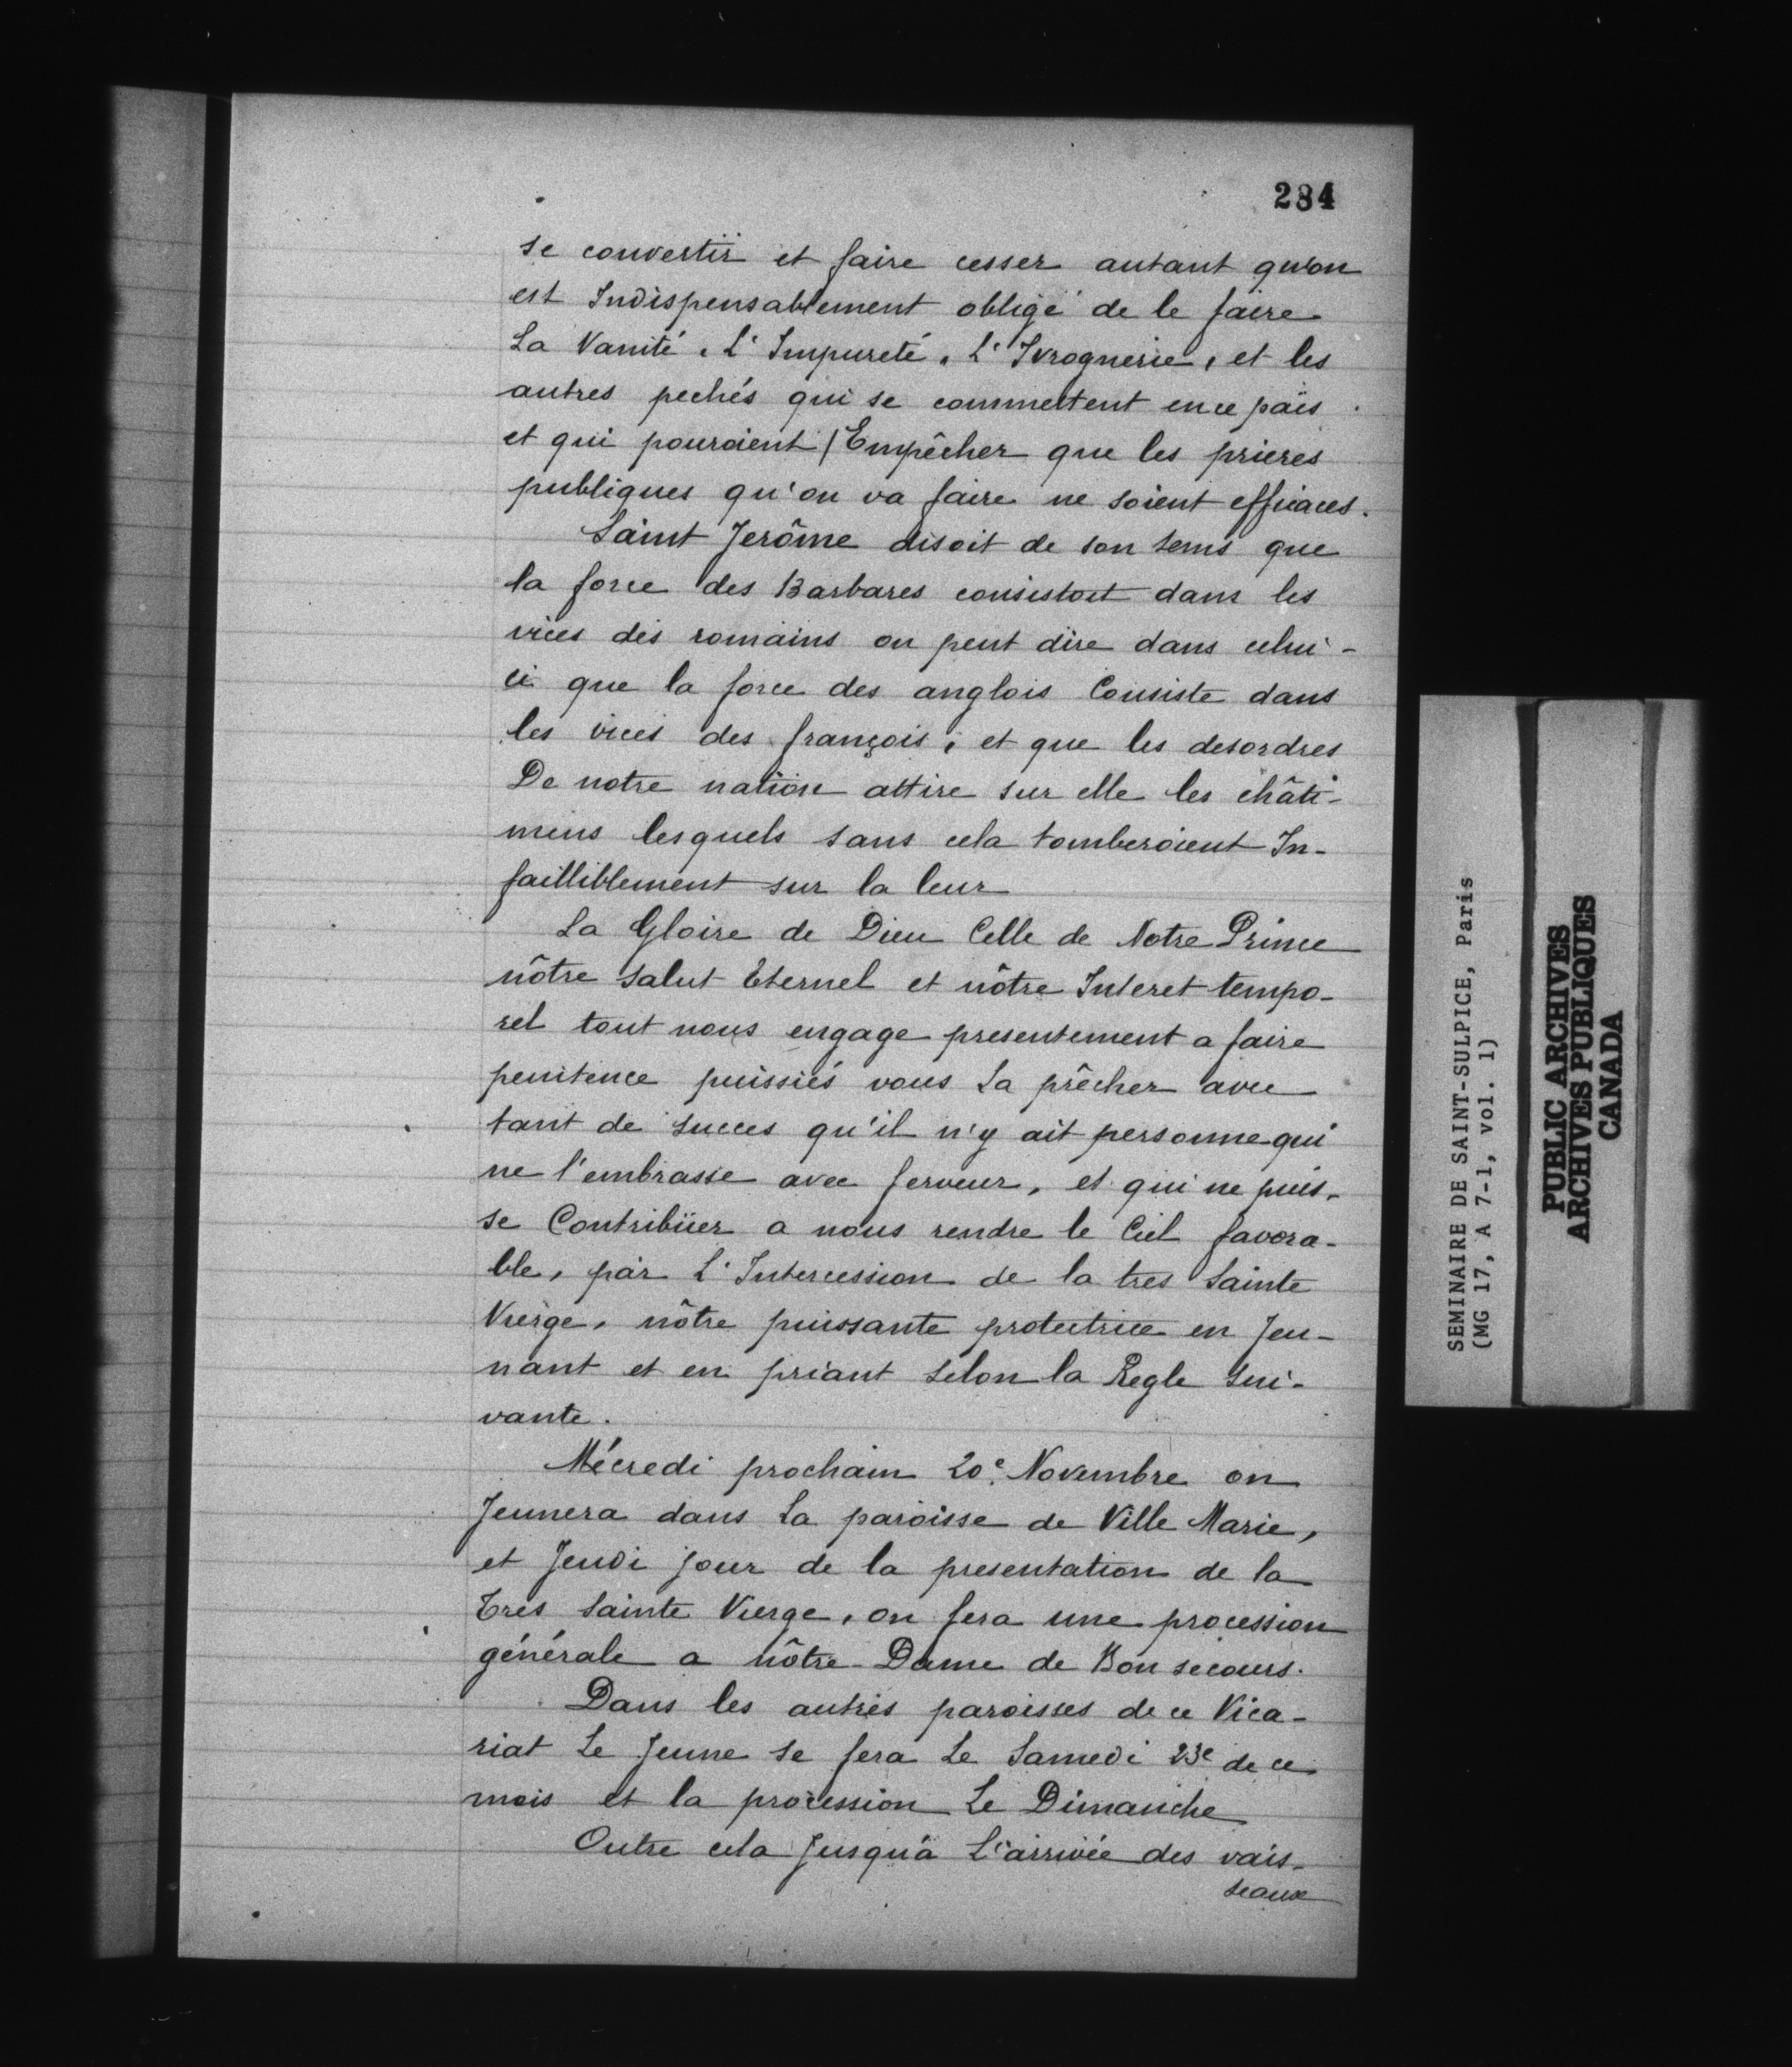 284
se convertir et faire cesser autant qu'on
est Indispensablement obligé de le faire
La Vanité, L'Impureté, L'Ivrognerie, et les
autres pechés qui se commettent en ce païs
et qui pouroient Empêcher que les prieres
publiques qu'on va faire ne soient efficaces.
Saint Jerôme disoit de son tems que
la force des Barbares consistoit dans les
vices des romains on peut dire dans celui-
ci que la force des anglois Consiste dans
les vices des françois, et que les desordres
De notre nation attire sur elle les châti-
mens lesquels sans cela tomberoient In-
failliblement sur la leur
La Gloire de Dieu Celle de Notre Prince
nôtre salut Eternel et nôtre Interet tempo-
rel tout nous engage presentement a faire
penitence puissiés vous La prêcher avec
tant de succes qu'il n'y ait personne qui
ne l'embrasse avec ferveur, et qui ne puis-
se Contribüer a nous rendre le Ciel favora-
ble, par L'Intercession de la tres Sainte
Vierge, nôtre puissante protectrice en Jeu-
nant et en priant selon la Regle sui-
vante.
Mécredi prochain 20e. Novembre on
Jeunera dans La paroisse de Ville Marie,
et Jeudi jour de la presentation de la
Tres Sainte Vierge, on fera une procession
générale a nôtre Dame de Bon secours.
Dans les autres paroisses de ce Vica-
riat Le Jeune se fera Le Samedi 23e de ce
mois et la procession Le Dimanche
Outre cela Jusqu'à L'arrivée des vais-
seaux
SEMINAIRE DE SAINT-SULPICE, Paris
(MG 17, A 7-1, vol. 1)
PUBLIC ARCHIVES
ARCHIVES PUBLIQUES
CANADA